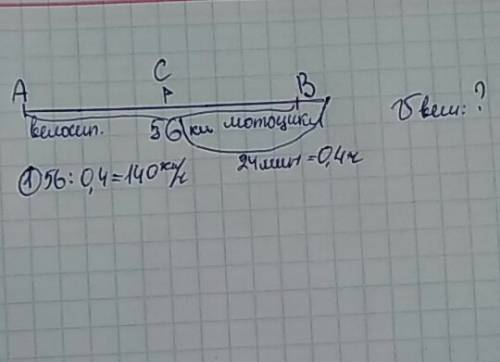 C
A B
велосип. 56 км мотоцикл
24 мин = 0,4 ч
vвел: ?
① 56 : 0,4 = 140 км/ч